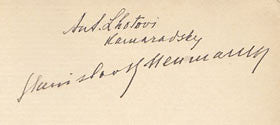 Ant. Lhotovi
kamarádsky
Stanislav K Neumann